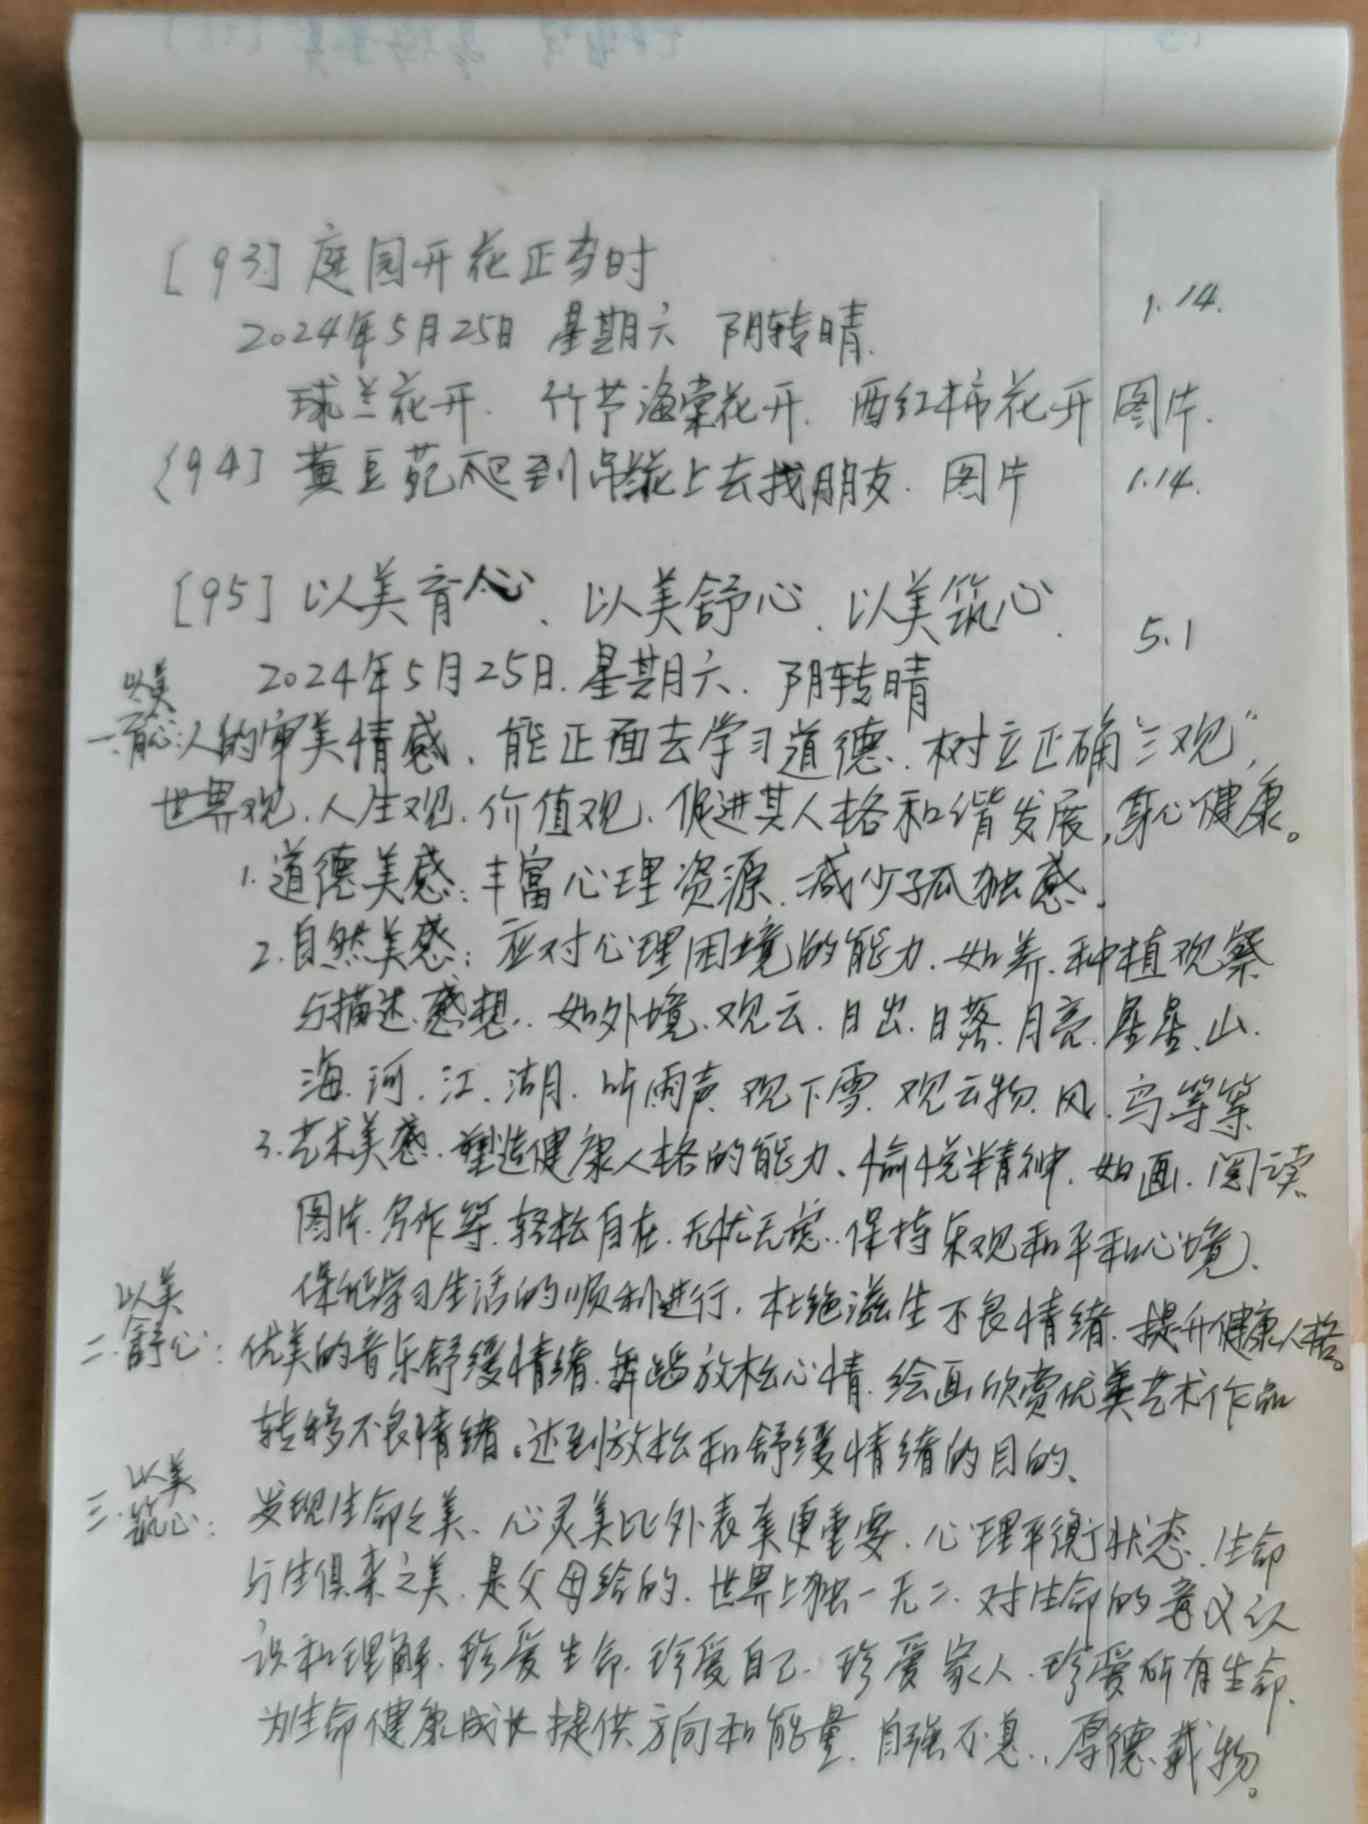 [93] 庭园开花正当时
1.14.
2024年5月25日 星期六 阴转晴.
球兰花开. 竹节海棠花开. 西红柿花开 图片.
[94] 黄豆苑爬到吊栏上去找朋友. 图片 1.14.
[95] 以美育心、以美舒心、以美筑心.
5.1
2024年5月25日. 星期六. 阴转晴
以美
一.育心:人的审美情感、能正面去学习道德、树立正确“三观”,
世界观、人生观、价值观、促进其人格和谐发展,身心健康。
1.道德美感:丰富心理资源、减少孤独感.
2.自然美感:应对心理困境的能力.如养.种植观察
与描述、感想..如外境、观云.日出.日落.月亮.星星、山.
海.河.江.湖.听雨声.观下雪.观云物.风.鸟等等
3.艺术美感.塑造健康人格的能力、愉悦精神.如画.阅读
图片.名作等.轻松自在.无忧无虑..保持乐观和平和心境、
保证学习生活的顺利进行.杜绝滋生不良情绪.提升健康人格。
以美
二.舒心:优美的音乐舒缓情绪.舞蹈放松心情.绘画欣赏优美艺术作品
转移不良情绪。达到放松和舒缓情绪的目的、
以美
三.筑心:发现生命之美、心灵美比外表美更重要.心理平衡状态.生命
与生俱来之美.是父母给的.世界上独一无二.对生命的意义认
识和理解.珍爱生命.珍爱自己.珍爱家人.珍爱所有生命.
为生命健康成长提供方向和能量.自强不息..厚德载物。